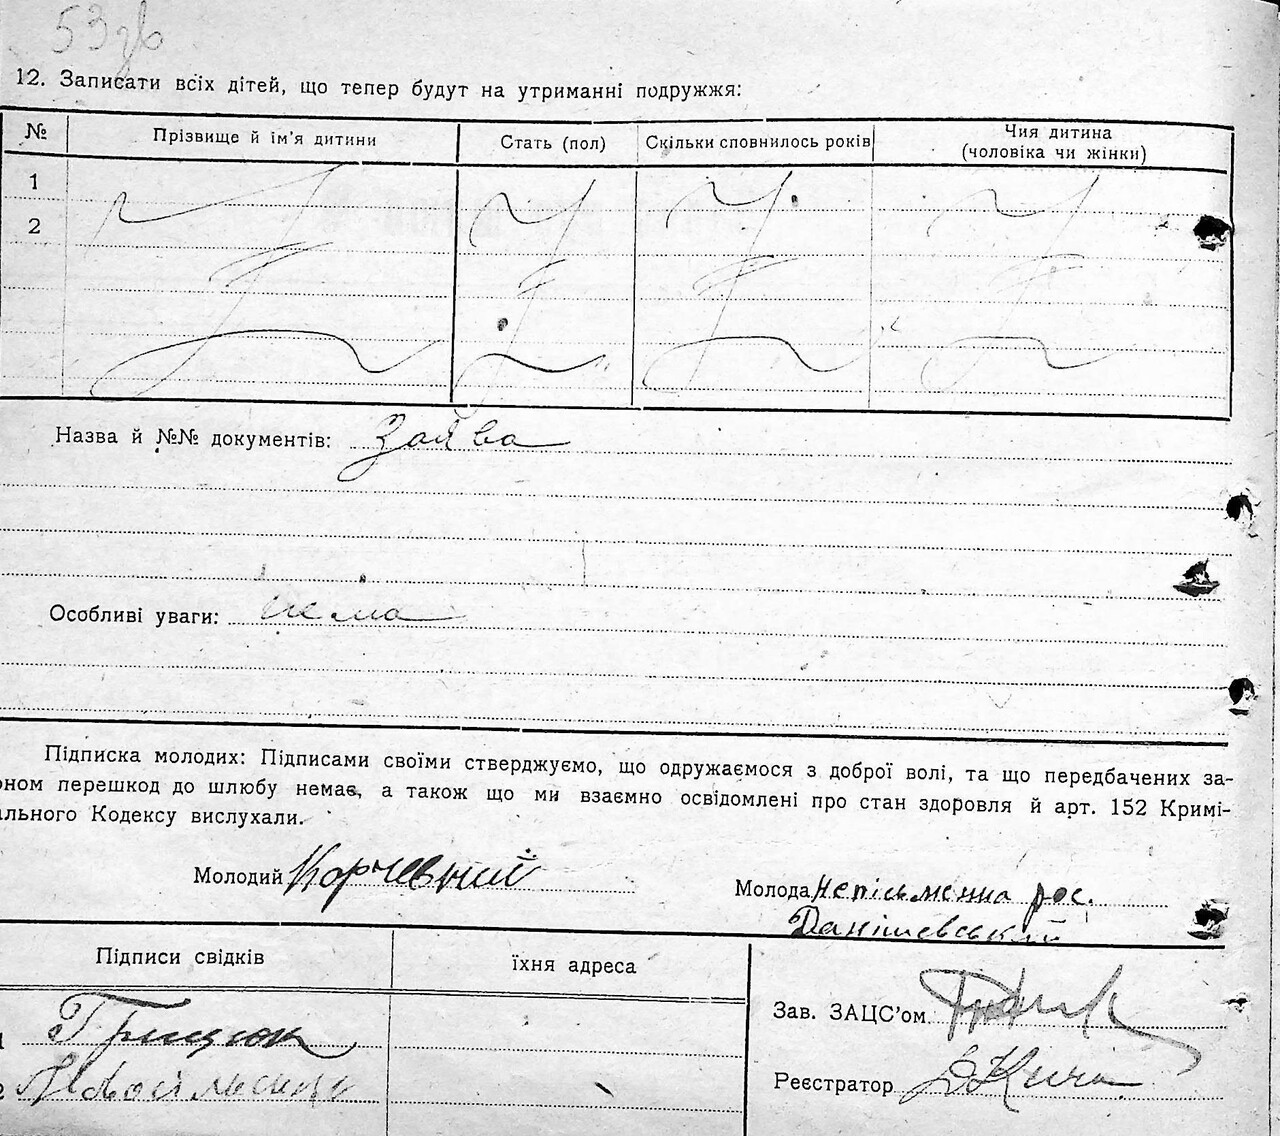 53 зв
12. Записати всіх дітей, що тепер будут на утриманні подружжя:
№ Прізвище й ім'я дитини Стать (пол) Скільки сповнилось років Чия дитина
(чоловіка чи жінки)
1
2
Назва й №№ документів: Заява
Особливі уваги: нема
Підписка молодих: Підписами своїми стверджуємо, що одружаємося з доброї волі, та що передбачених за-
оном перешкод до шлюбу немає, а також що ми взаємно освідомлені про стан здоровля й арт. 152 Кримі-
ального Кодексу вислухали.
Молодий Корчевный
Молода Непісьменна рос.
Данішевський
Підписи свідків їхня адреса
Грищюк
Зав. ЗАЦС'ом
Реєстратор